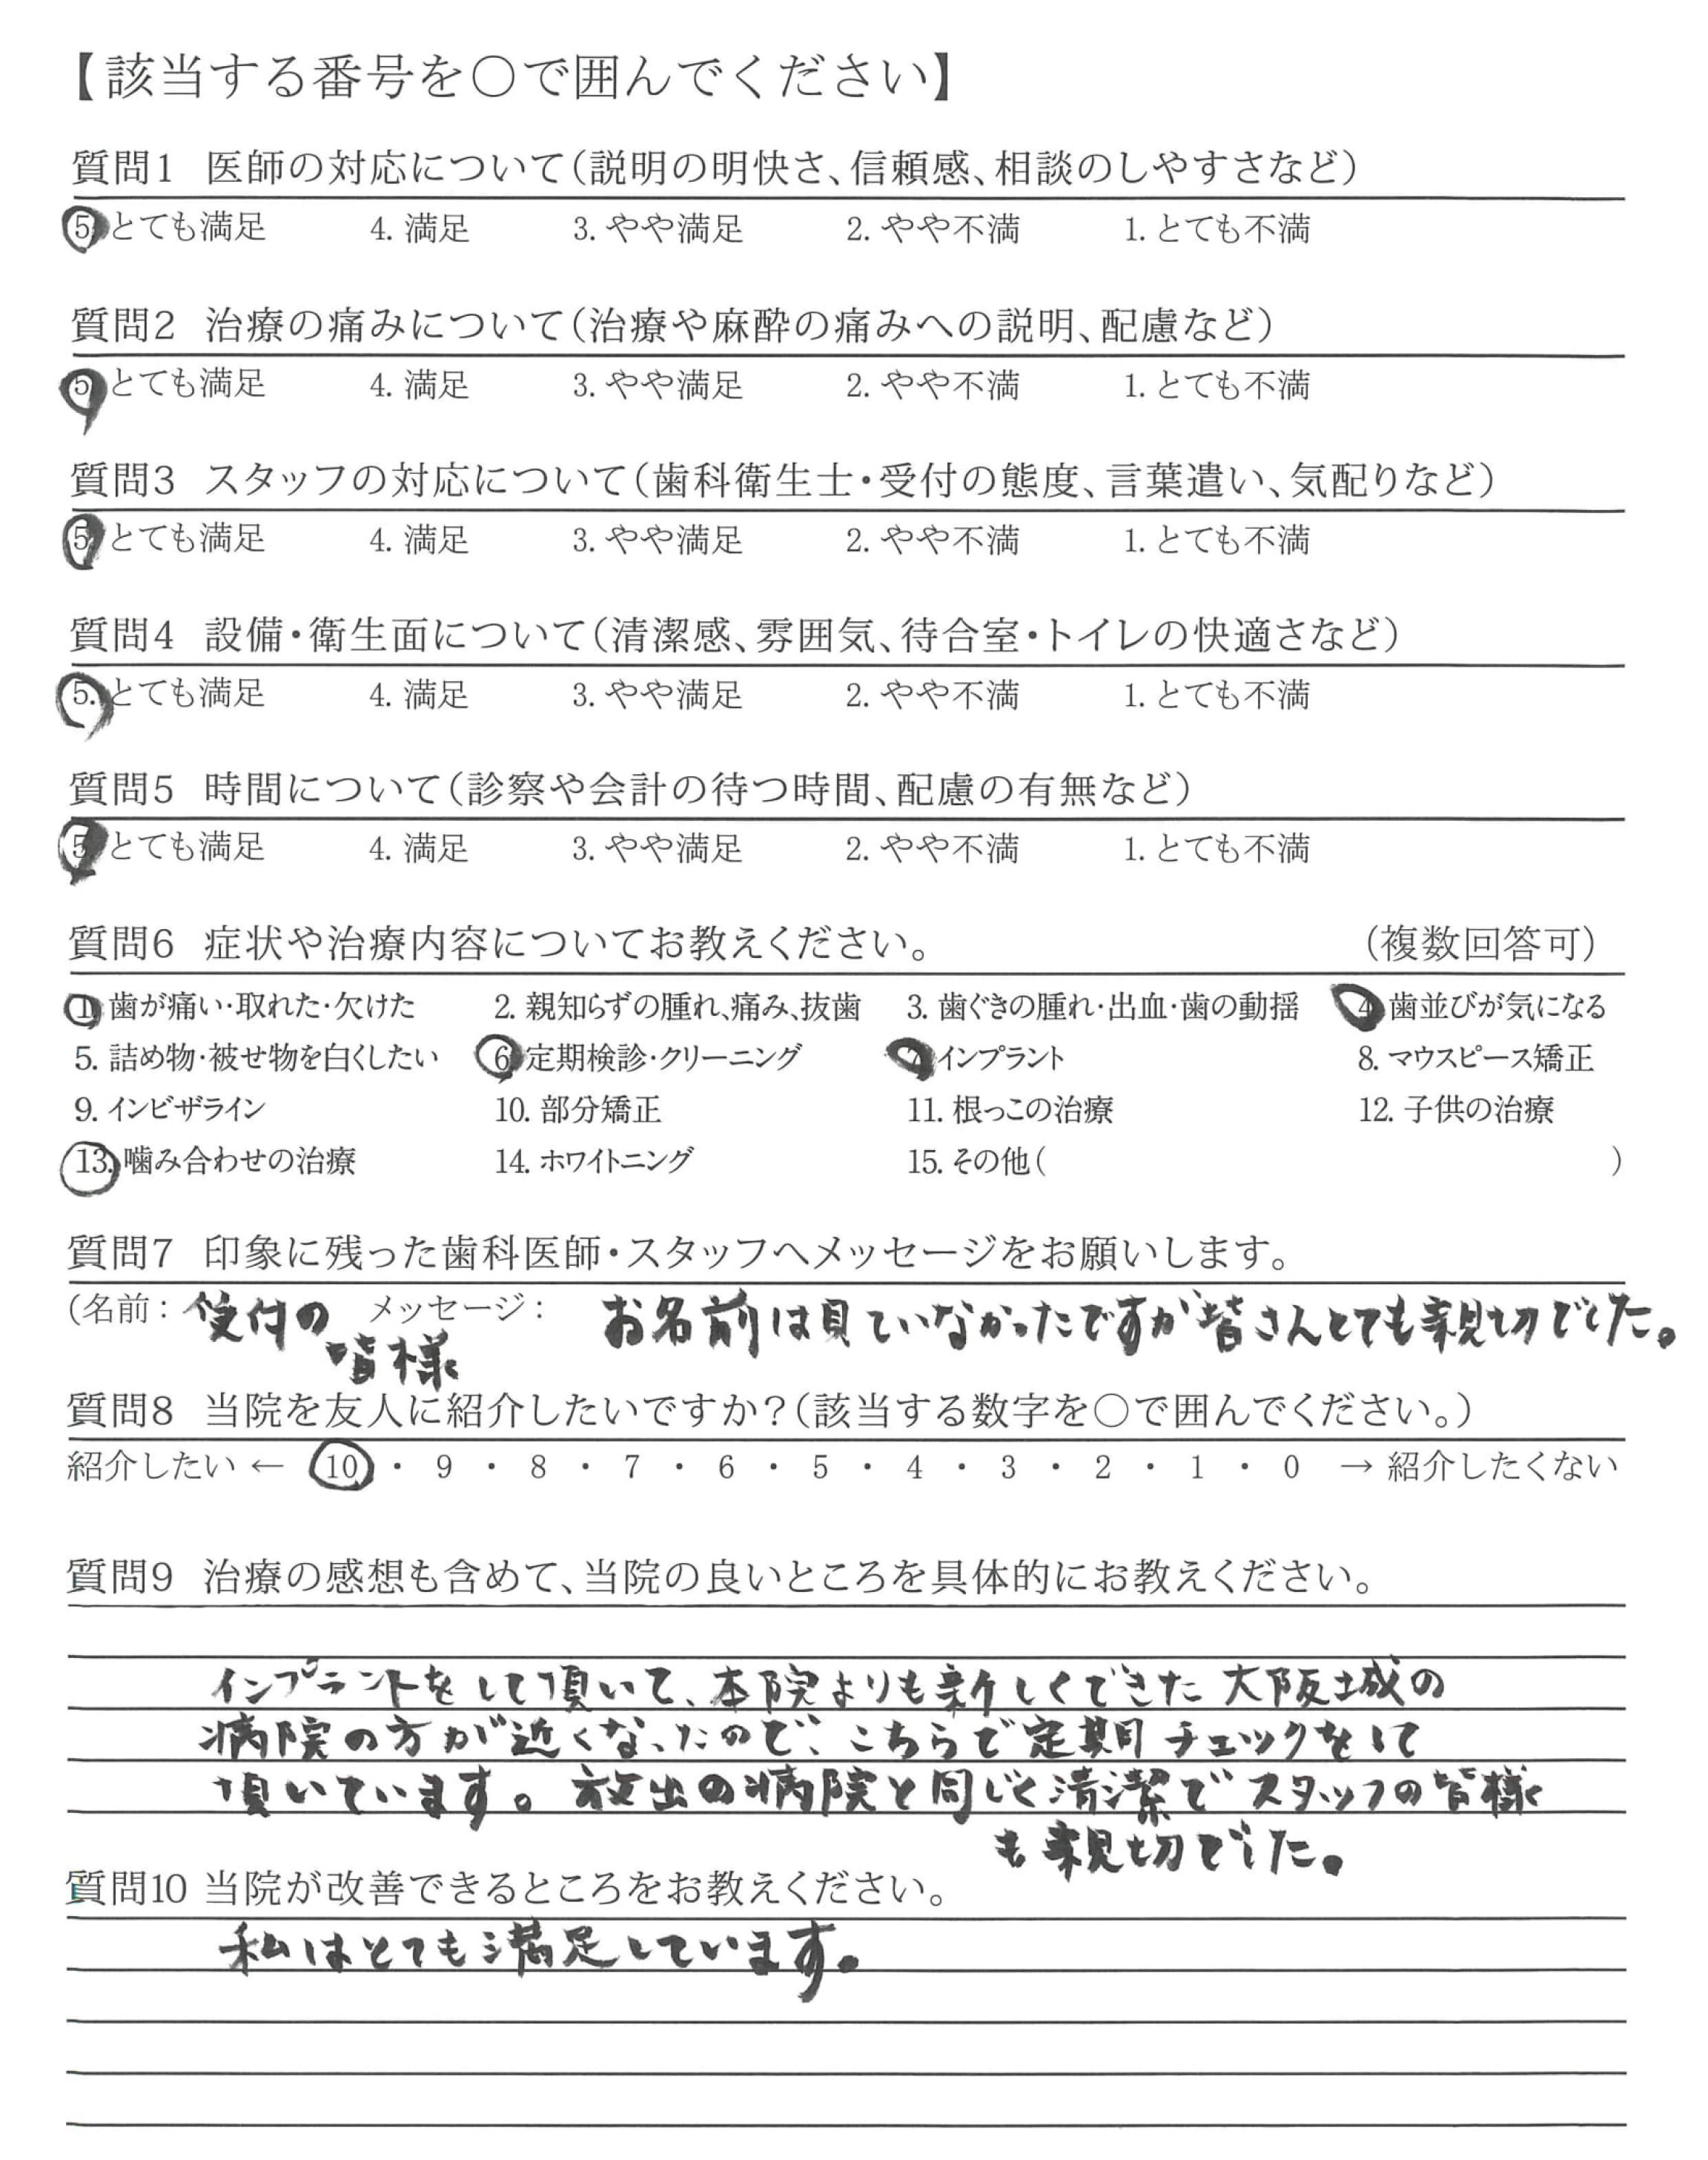 【該当する番号を○で囲んでください】
質問1 医師の対応について（説明の明快さ、信頼感、相談のしやすさなど）
5. とても満足 4. 満足 3. やや満足 2. やや不満 1. とても不満
質問2 治療の痛みについて（治療や麻酔の痛みへの説明、配慮など）
5. とても満足 4. 満足 3. やや満足 2. やや不満 1. とても不満
質問3 スタッフの対応について（歯科衛生士・受付の態度、言葉遣い、気配りなど）
5. とても満足 4. 満足 3. やや満足 2. やや不満 1. とても不満
質問4 設備・衛生面について（清潔感、雰囲気、待合室・トイレの快適さなど）
5. とても満足 4. 満足 3. やや満足 2. やや不満 1. とても不満
質問5 時間について（診察や会計の待つ時間、配慮の有無など）
5. とても満足 4. 満足 3. やや満足 2. やや不満 1. とても不満
質問6 症状や治療内容についてお教えください。 （複数回答可）
1. 歯が痛い・取れた・欠けた 2. 親知らずの腫れ、痛み、抜歯 3. 歯ぐきの腫れ・出血・歯の動揺 4. 歯並びが気になる
5. 詰め物・被せ物を白くしたい 6. 定期検診・クリーニング 7. インプラント 8. マウスピース矯正
9. インビザライン 10. 部分矯正 11. 根っこの治療 12. 子供の治療
13. 噛み合わせの治療 14. ホワイトニング 15. その他（ ）
質問7 印象に残った歯科医師・スタッフへメッセージをお願いします。
（名前： 受付の メッセージ： お名前は見ていなかったですが皆さんとても親切でした。
皆様
質問8 当院を友人に紹介したいですか？（該当する数字を○で囲んでください。）
紹介したい ← 10 ・ 9 ・ 8 ・ 7 ・ 6 ・ 5 ・ 4 ・ 3 ・ 2 ・ 1 ・ 0 → 紹介したくない
質問9 治療の感想も含めて、当院の良いところを具体的にお教えください。
インプラントをして頂いて、本院よりも新しくできた大阪城の
病院の方が近くなったので、こちらで定期チェックをして
頂いています。放出の病院と同じく清潔でスタッフの皆様
も親切でした。
質問10 当院が改善できるところをお教えください。
私はとても満足しています。